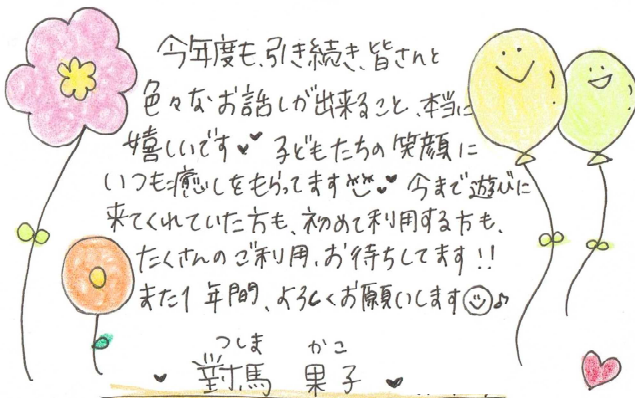 今年度も、引き続き、皆さんと
色々なお話しが出来ること、本当に
嬉しいです 子どもたちの笑顔に
いつも癒しをもらってます 今まで遊びに
来てくれていた方も、初めて利用する方も、
たくさんのご利用、お待ちしてます!!
また1年間、よろしくお願いします♪
つしま かこ
對馬 果子